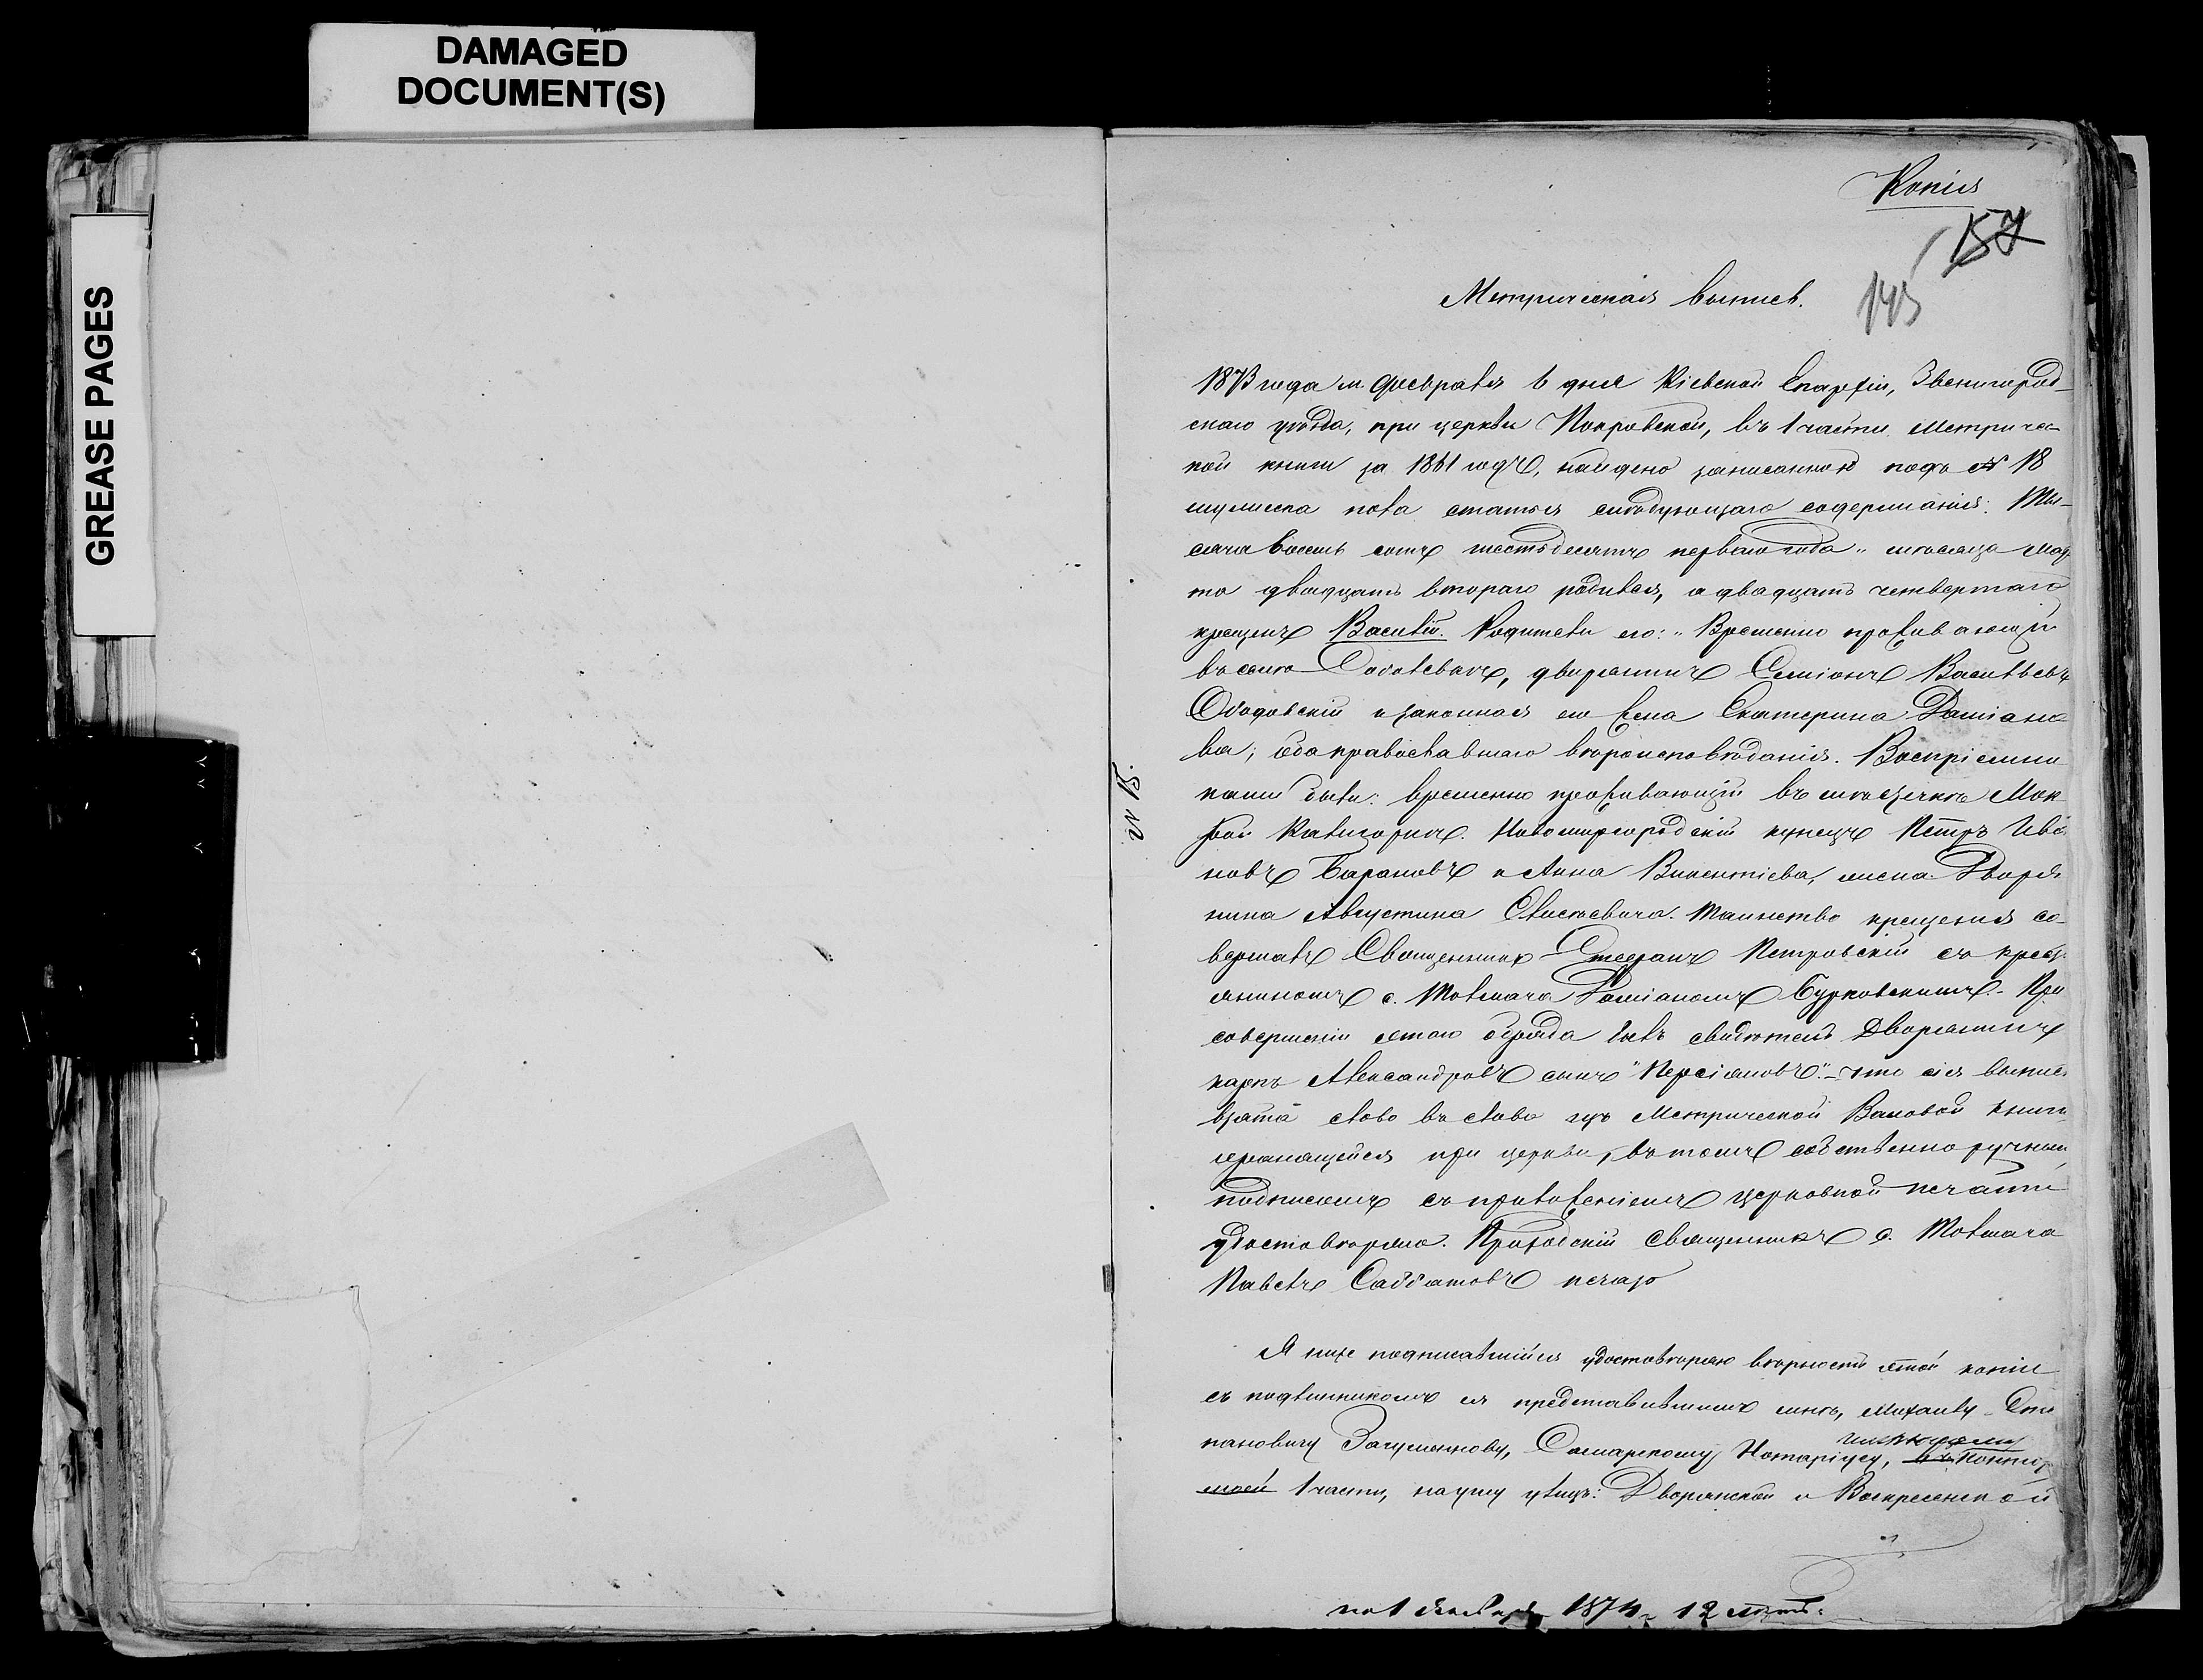 DAMAGED
DOCUMENT(S)
GREASE PAGES
Копія
157
145
Метрическая выпись.
1873 года м. Февраля 6 дня Кіевской Епархіи, Звенигород-
скаго уѣзда, при церкви Покровской, въ 1 части Метричес-
кой книги за 1861 годъ, найдено записанною подъ № 18
мужеска пола статья слѣдующаго содержанія: Ты-
сяча восемь сотъ шестьдесятъ перваго года „ мѣсяца Мар
та двадцать втораго родился, а двадцать четвертаго
крещенъ Василій. Родители его: „ Временно проживающій
въ селѣ дворянинъ Симіонъ Васильевъ
Ободовскій и законная его жена Екатерина Даміано
ва; оба православнаго вѣроисповѣданія. Воспріемни
ками были: временно проживающій въ мѣстечкѣ Мок
рой Калигоркѣ. Новомиргородскій купецъ Петръ Ива
новъ Барановъ и Анна Викентіева, жена Дворя
нина Августина Таинство крещенія со-
вершалъ Священникъ Стефанъ Петровскій съ крест
яниномъ с. Толмача Даміаномъ Бурковскимъ. - При
совершеніи этого обряда былъ свидѣтель Дворянинъ
Карпъ Александровъ сынъ "Персіановъ". - что сія выпис
взята слово въ слово изъ Метрической книги
хранящейся при церкви, въ томъ собственноручным
подписомъ съ приложеніемъ церковной печати
удостовѣряю. Приходскій священникъ с. Толмача
Павелъ Саббатовъ
№ 15.
Я ниже подписавшійся удостовѣряю вѣрность этой копіи
съ подлинникомъ ея представленнымъ мнѣ, Михаилу Сте
пановичу Загуменнову, Самарскому Нотаріусу, въ Контор
моей 1 части, на углу улицъ: Дворянской и Воскресенской
1874 12 лѣтъ.